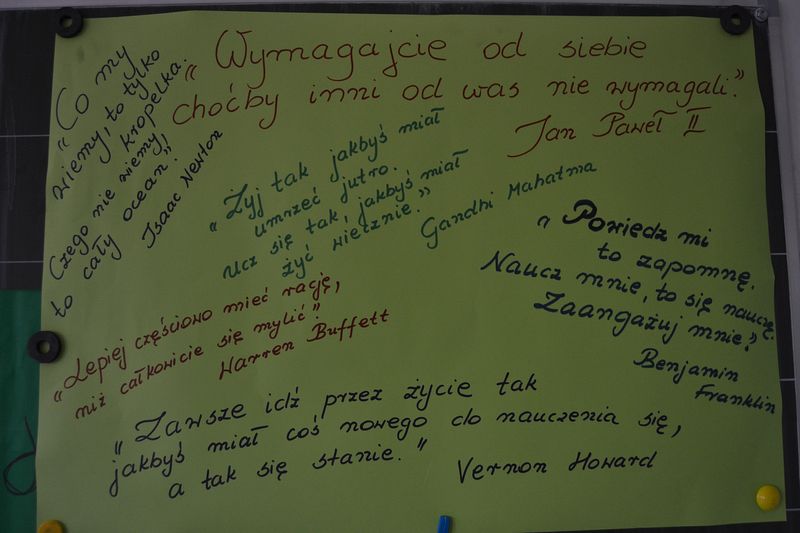 "Co my
wiemy, to tylko
kropelka.
Czego nie wiemy,
to cały ocean."
Isaac Newton
"Wymagajcie od siebie
choćby inni od was nie wymagali."
Jan Paweł II
"Żyj tak jakbyś miał
umrzeć jutro.
Ucz się tak, jakbyś miał
żyć wiecznie."
Gandhi Mahatma
"Powiedz mi
to zapomnę.
Naucz mnie, to się nauczę.
Zaangażuj mnie."
Benjamin
Franklin
"Lepiej częściowo mieć rację,
niż całkowicie się mylić".
Warren Buffett
"Zawsze idź przez życie tak
jakbyś miał coś nowego do nauczenia się,
a tak się stanie."
Vernon Howard